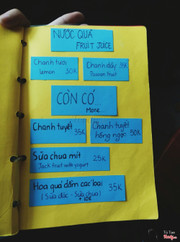 NƯỚC QUẢ
FRUIT JUICE
Chanh tươi
lemon 30K
Chanh dây 31K
Passion fruit
CÒN CÓ
More...
Chanh tuyết
35K
Chanh tuyết
hồng ngọc 50K
Sữa chua mít 25K
Jack fruit with yogurt
Hoa quả dầm các loại 35K